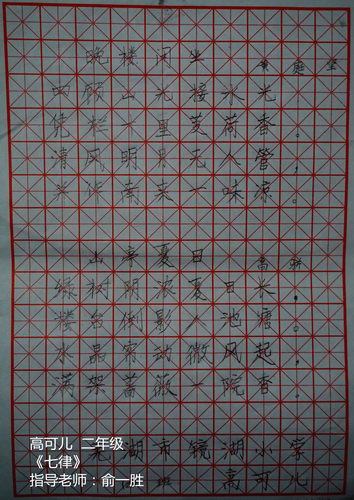 晚楼闲坐 黄庭坚
四顾山光接水光，
凭栏十里菱荷香。
清风明月无人管，
并作南来一味凉。
山亭夏日 高骈
绿树阴浓夏日长，
楼台倒影入池塘。
水晶帘动微风起，
满架蔷薇一院香。
芜湖市镜湖小学
班 高可儿
高可儿 二年级
《七律》
指导老师：俞一胜